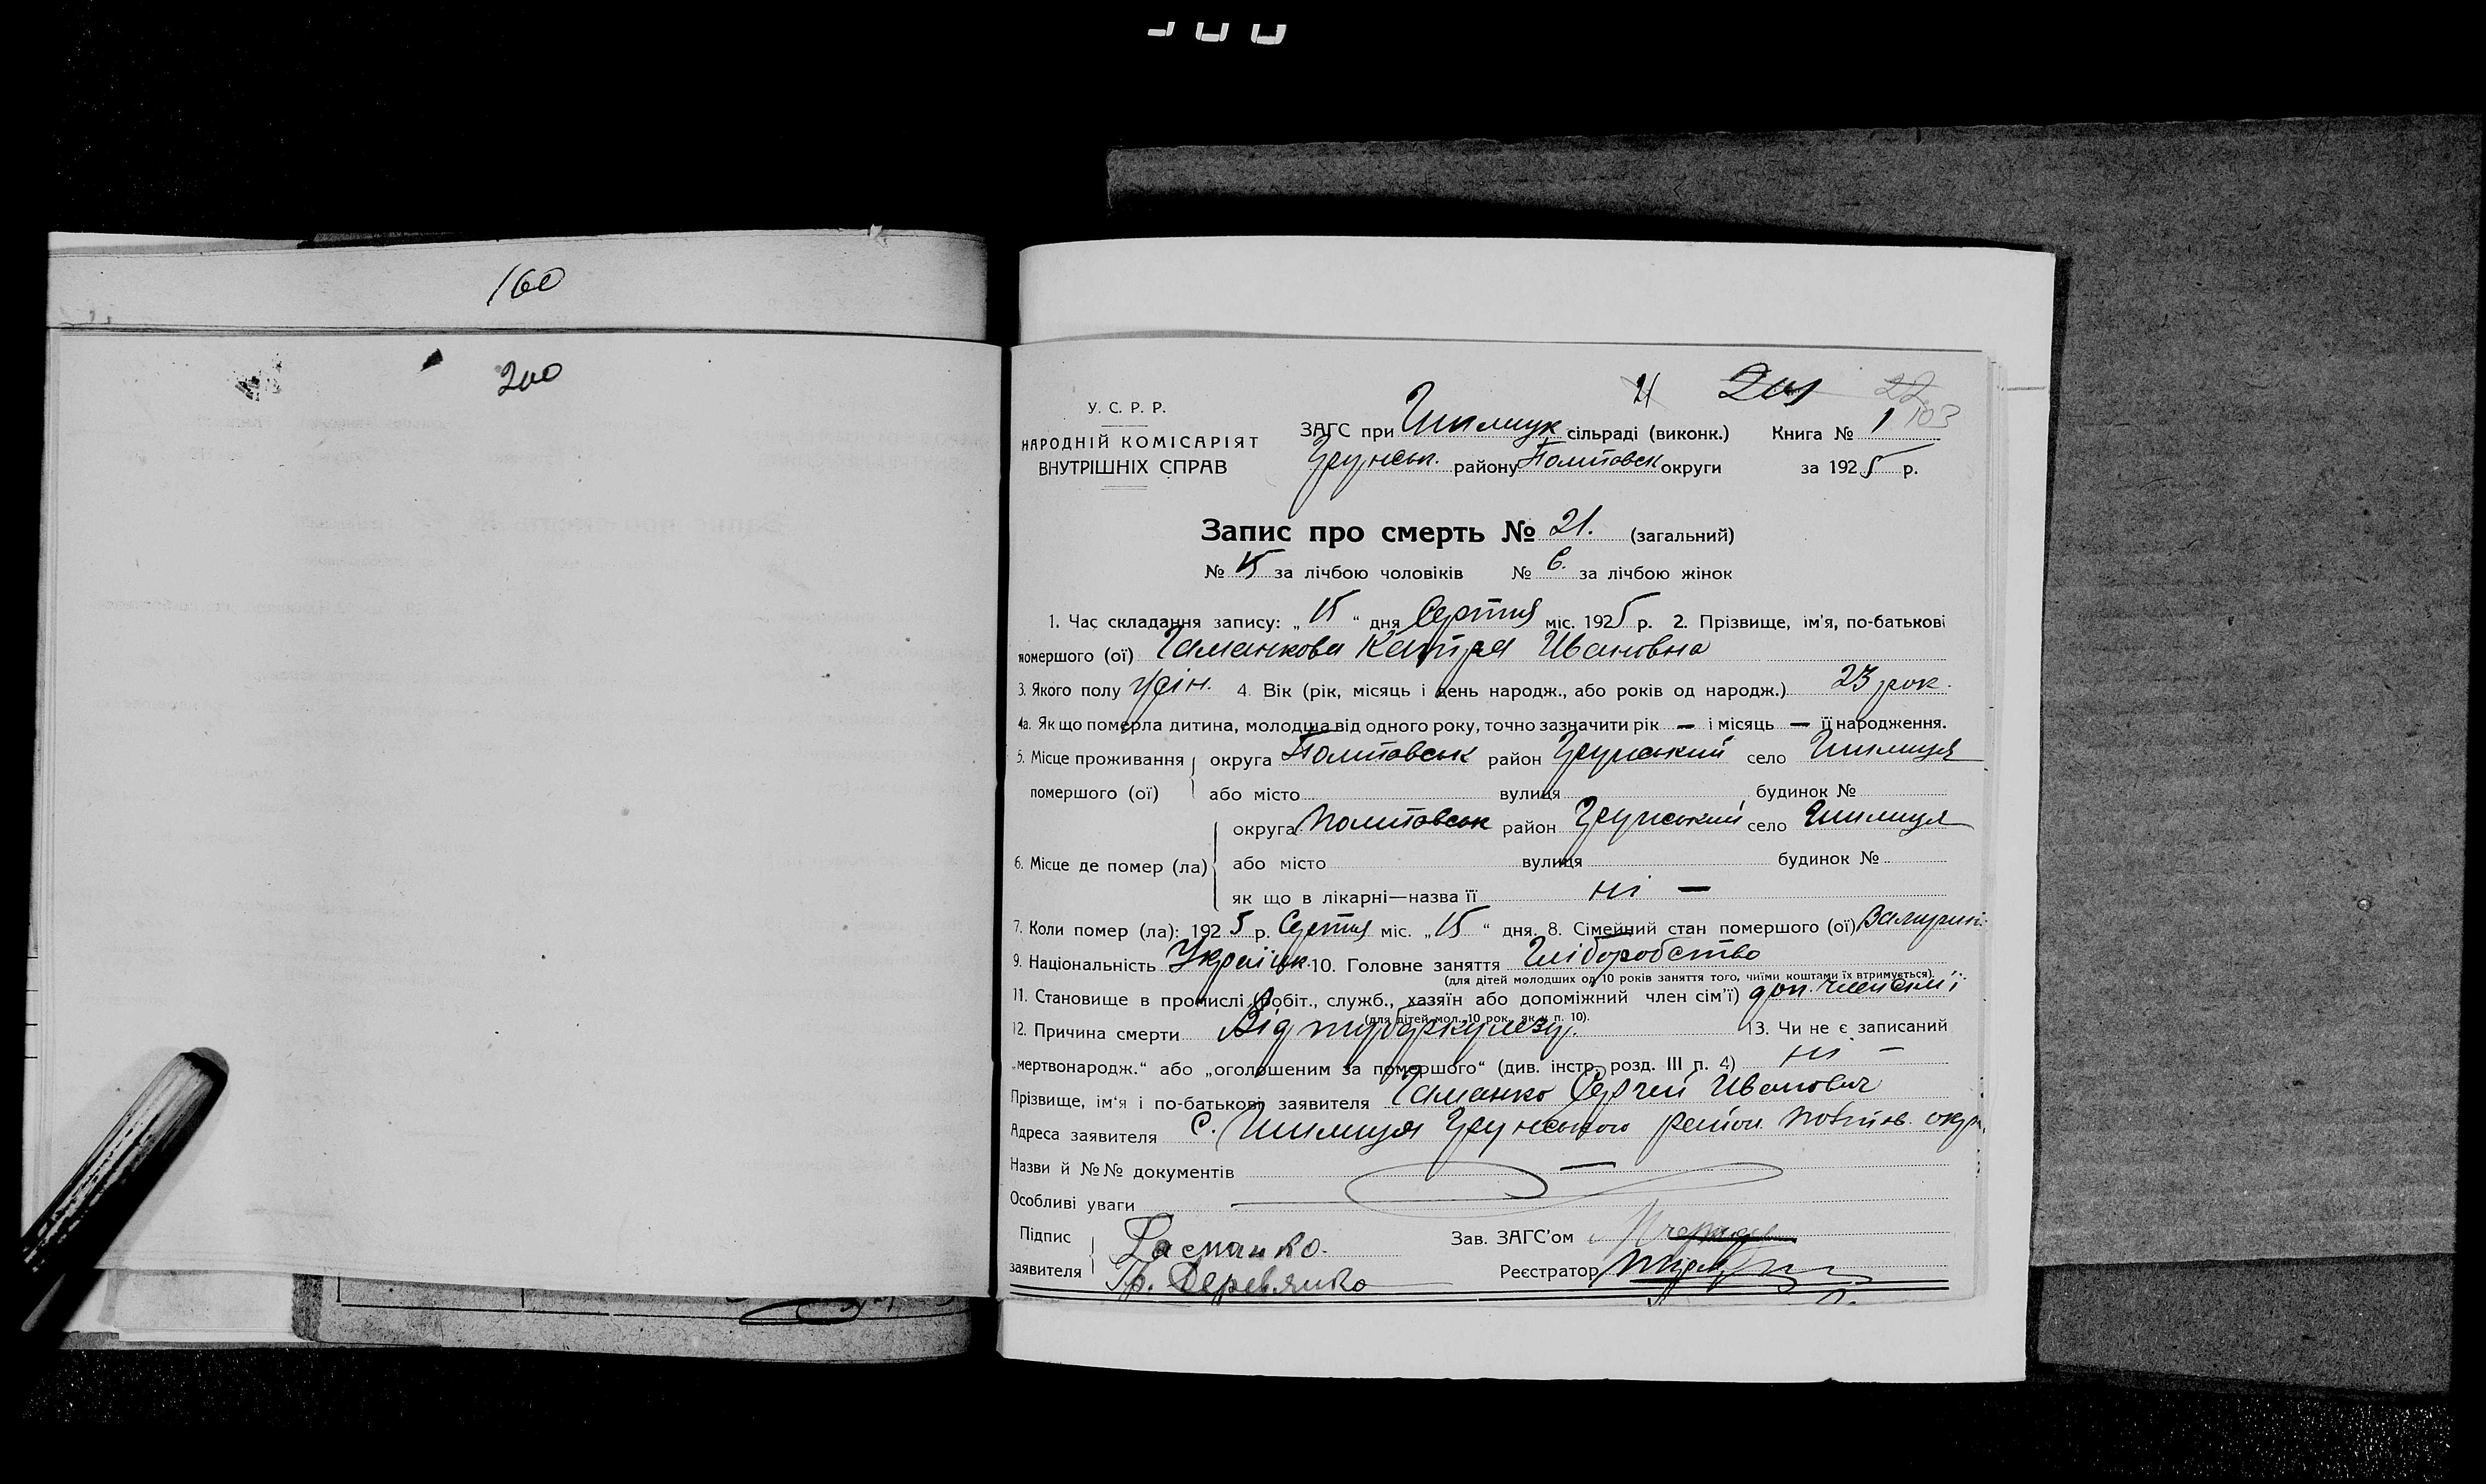 160
200
21 201 22
103
У. С. Р. Р.
НАРОДНІЙ КОМІСАРІЯТ
ВНУТРІШНІХ СПРАВ
ЗАГС при сільраді (виконк.) Книга № 1
Грунськ. району Полтовськ округи за 1925 р.
Запис про смерть № 21. (загальний)
№ 15 за лічбою чоловіків № 6. за лічбою жінок
1. Час складання запису: „ 15 “ дня Серпня міс. 1925 р. 2. Прізвище, ім'я, по-батькові
помершого (ої) Гаманкова Катря Ивановна
3. Якого полу жін. 4. Вік (рік, місяць і день народж., або років од народж.) 23 рок.
4а. Як що померла дитина, молодша від одного року, точно зазначити рік — і місяць — її народження.
5. Місце проживання округа Полтовськ район Грунський село
помершого (ої) або місто вулиця будинок №
округа Полтовськ район Грунський село
6. Місце де помер (ла) або місто вулиця будинок №
як що в лікарні—назва її ні —
7. Коли помер (ла): 1925 р. Серпня міс. „ 15 “ дня. 8. Сімейний стан помершого (ої)
9. Національність Українк. 10. Головне заняття Хліборобство
(для дітей молодших од 10 років заняття того, чиїми коштами їх втримується).
11. Становище в промислі (робіт., служб., хазяїн або допоміжний член сім'ї) доп. член сім'ї
(для дітей мол. 10 рок. як и п. 10).
12. Причина смерти Від туберкулезу. 13. Чи не є записаний
„мертвонародж.“ або „оголошеним за помершого“ (див. інстр. розд. III п. 4) ні —
Прізвище, ім'я і по-батькові заявителя Гаманко Сергей Иванович
Адреса заявителя с. Грунського район. Полтов. окр.
Назви й №№ документів —
Особливі уваги
Підпис
заявителя
Гаманко.
Гр. Деревянко
Зав. ЗАГС'ом
Реєстратор